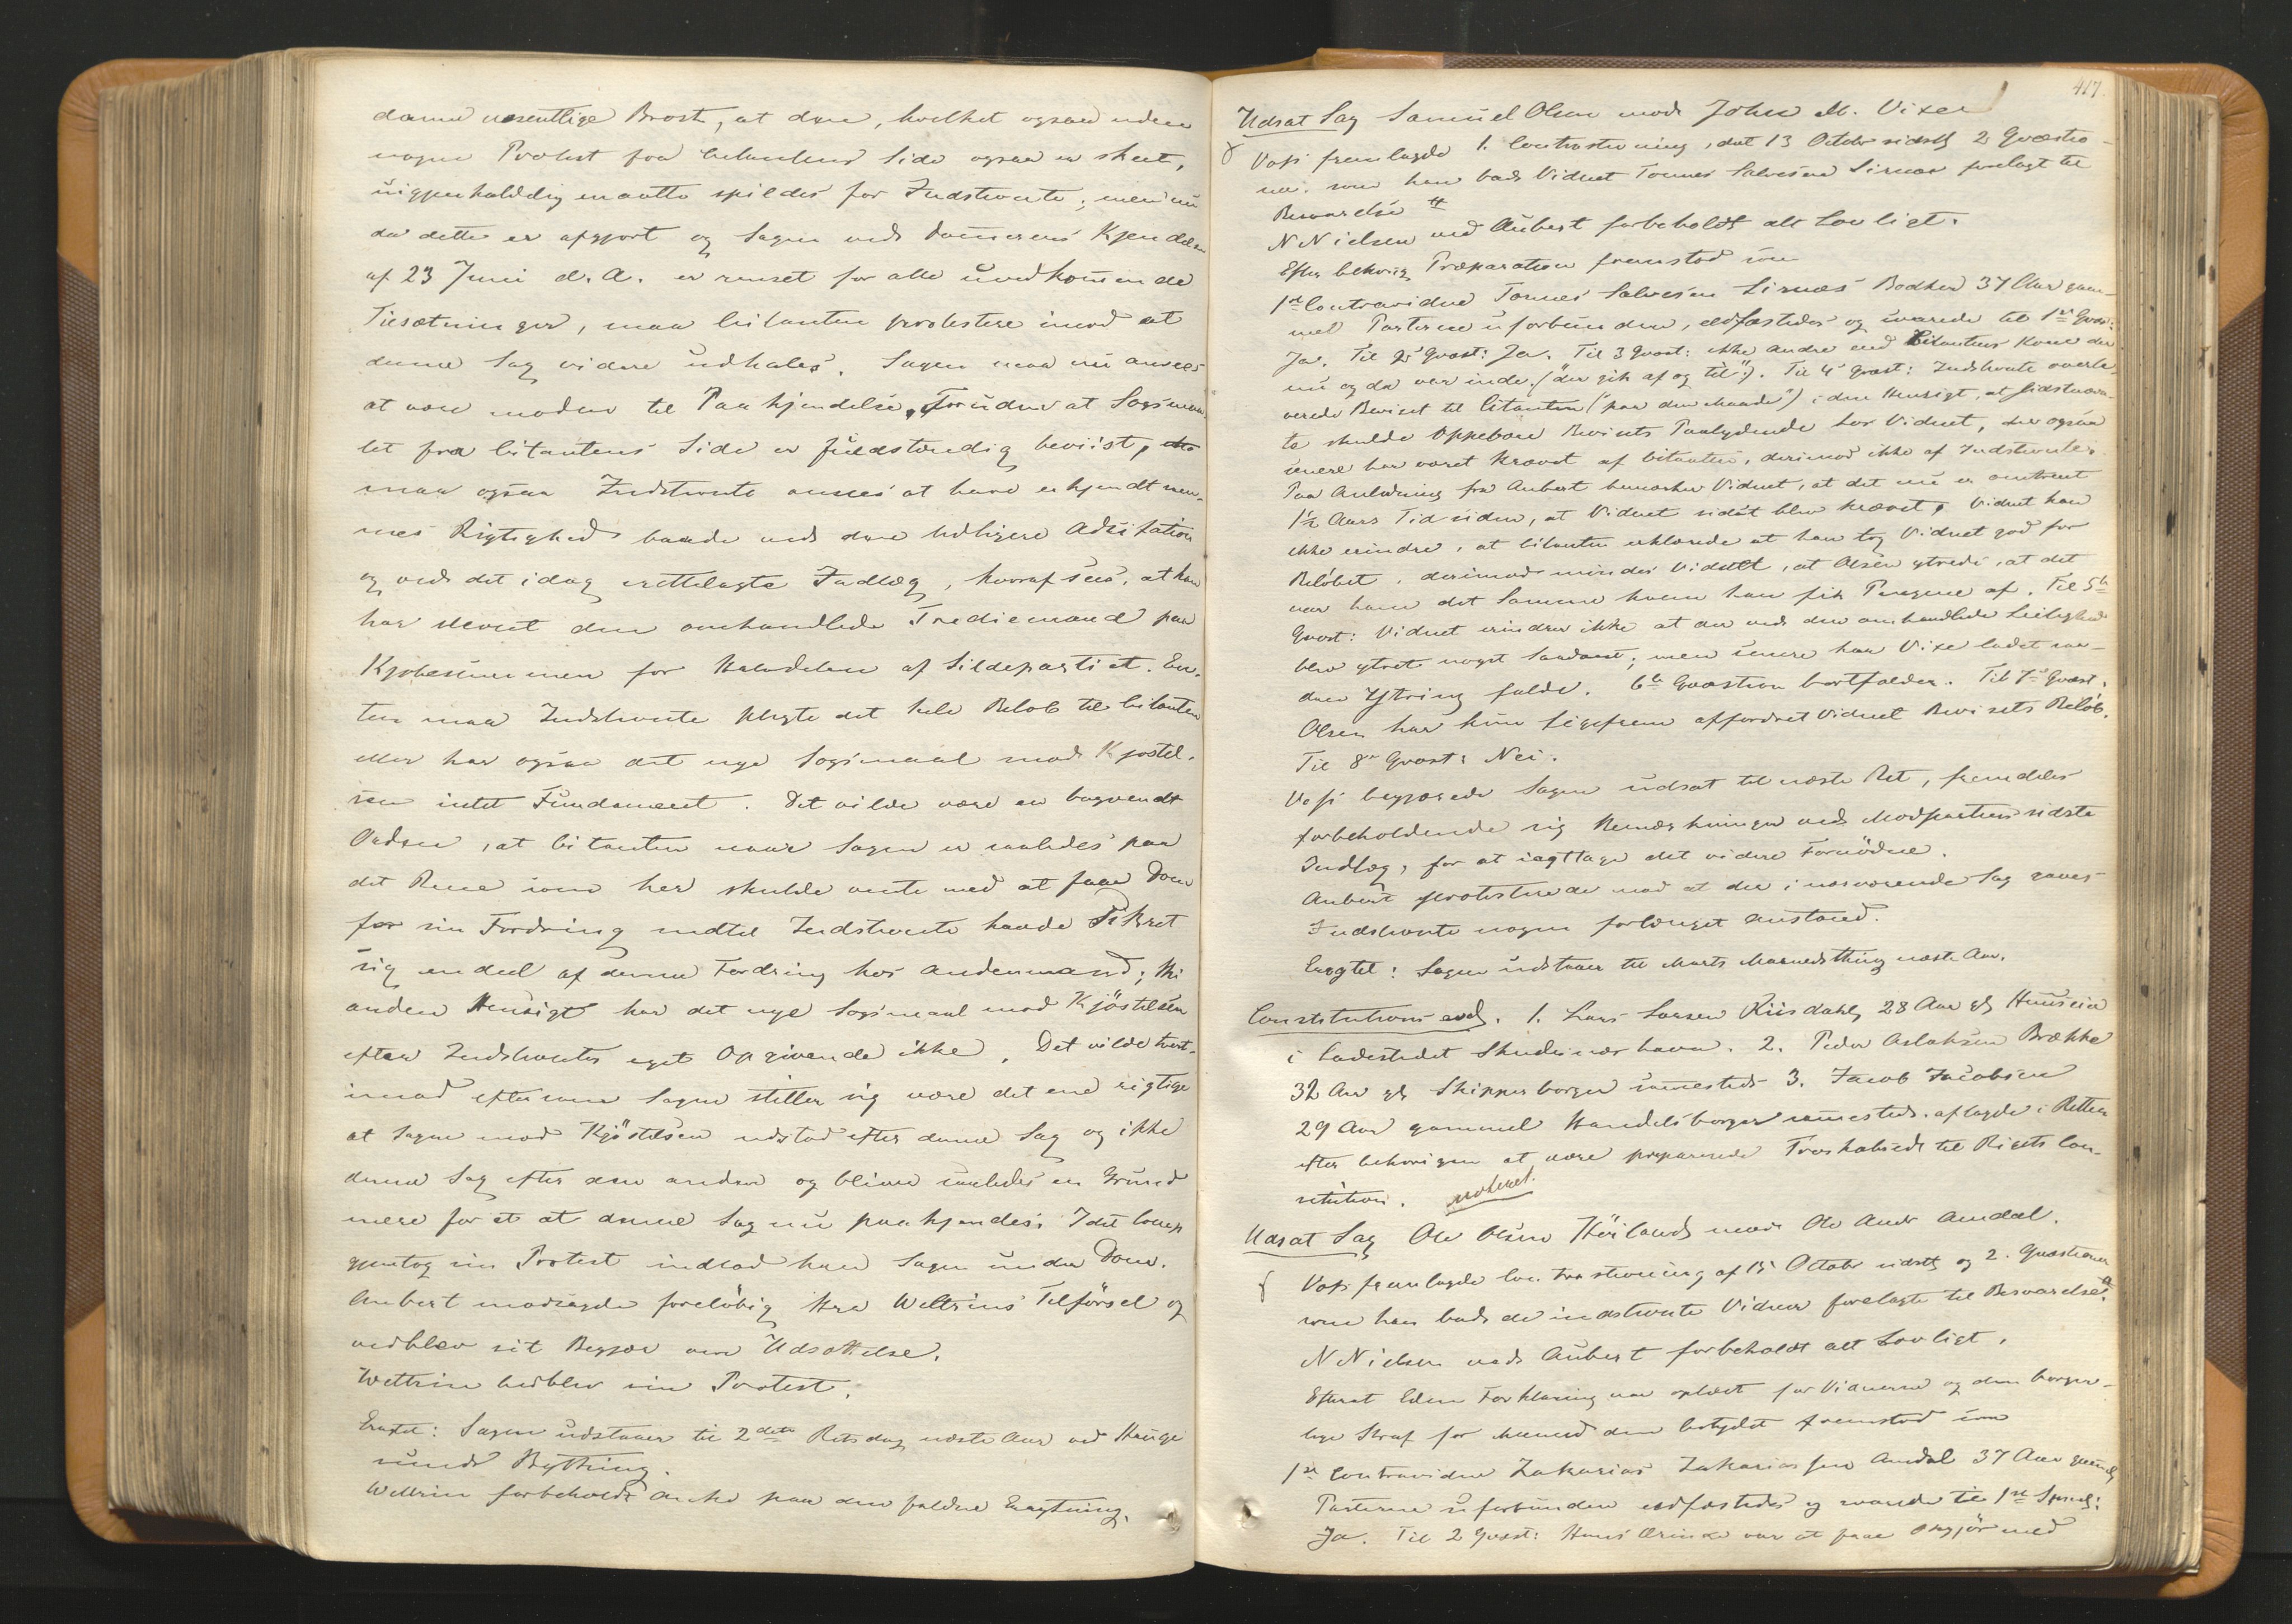 denne væsentlige Brøst, at den, hvilket ogsaa uden
nogen Protest fra Citantens Side ogsaa er skeet,
uigjenkaldelig maatte spildes for Indstevnte; men nu
da dette er afgjort og Sagen ved Dommerens Kjendelse
af 23 Juni d. A. er renset for alle uvedkommende
Tilsætninger, maa Citanten protestere imod at
denne Sag videre udhales. Sagen maa nu ansees
at være moden til Paakjendelse, Foruden at Søgsmaa-
let fra Citantens Side er fuldstændig beviist,
maa ogsaa Indstevnte ansees at have erkjendt sam-
mes Rigtighed baade ved den tidligere Adcitation
og ved det idag irettelagte Indlæg, hvoraf sees, at han
har stevnt den omhandlede Trediemand paa
Kjøbesummen for Halvdelen af Sildepartiet. En-
ten maa Indstevnte skylde det hele Beløb til Citanten
eller har ogsaa det nye Søgsmaal mod Kjøstel-
sen intet Fundament. Det vilde være en bagvendt
Orden, at Citanten naar Sagen er saaledes paa
det Rene som her skulde vente med at faae Dom
for sin Fordring indtil Indstevnte havde sikkret
sig en deel af denne Fordring hos andenmand; thi
anden Hensigt har det nye Søgsmaal mod Kjöstelsen
efter Indstevntes eget Opgivende ikke. Det vilde tvert-
imod eftersom Sagen stiller sig være det ene rigtige
at Sagen mod Kjöstelsen udstod efter denne Sag og ikke
denne Sag efter den anden og bliver saaledes en Grund
mere for at at denne Sag nu paakjendes. Idet Comp
gjentog sin Protest indlod han Sagen under Dom.
Aubert modsagde foreløbig Hr Weltzins Tilförsel og
vedblev sit Begjær om Udsættelse.
Weltzin vedblev sin Protest.
Eragtet: Sagen udstaaer til 2den Retsdag næste Aar ved Hauge
sunds Bything.
Weltzin forbeholdt Anke paa den faldne Eragtning.
417.
Udsat Sag Samuel Olsen mod John M. Vixe
Voss fremlagde 1. Contrastevning, dat 13 October sidstl 2 Qvæstio-
ner. som han bad Vidnet Tonnes Salvesen Lirnæs forelagt til
Besvarelse
N Nielsen ved Aubert forbeholdt alt Lovligt.
Efter behørig Præparation fremstod som
1ste Contravidne Tonnes Salvesen Lirnæs Bødker 37 Aar gam-
mel Parterne uforbunden, edfæstedes og svarede til 1ste Qvæst:
Ja. Til 2 Qvæst: Ja. Til 3 Qvæst: ikke andre end Citantens Kone der
nu og da var inde. ("der gik af og til"). Til 4 Qvæst: Indstevnte overle-
verede Beviset til Citanten ("paa den Maade") i den Hensigt, at sidstnævn-
te skulde oppebære Bevisets Paalydende hos Vidnet, der ogsaa
senere har været krævet af Citanten, derimod ikke af Indstevnte.
Paa Anledning fra Aubert bemærker Vidnet, at det nu er omtrent
1½ Aars Tid siden, at Vidnet sidst blev krævet. Vidnet kan
ikke erindre, at Citanten erklærede at han tog Vidnet god for
Beløbet, derimod mindes Vidnet, at Olsen ytrede, at det
var ham det Samme hvem han fik Pengene af. Til 5te
Qvæst: Vidnet erindrer ikke at der ved den omhandlede Leilighed
blev ytret noget Saadant; men senere har Vixe ladet saa-
dan Yttring falde. 6te Qvæstion bortfalder. Til 7de Qvæst:
Olsen har kun ligefrem affordret Vidnet Bevisets Beløb.
Til 8de Qvæst: Nei.
Voss begjærede Sagen udsat til næste Ret, fremdeles
forbeholdende sig Bemærkninger ved Modpartiens sidste
Indlæg, for at iagttage det videre Fornödne.
Aubert protesterede mod at der i nærværende Sag gaves
Indstevnte nogen forlænget Anstand.
Eragtet: Sagen udstaaer til Marts Maanedsthing næste Aar.
Constitutions-eed. 1. Lars Larsen Riisdahl, 28 Aar gl Huuseier
i Ladestedet Skudesnæshavn. 2. Peder Aslaksen Brække
32 Aar gl Skipperborger sammesteds 3. Jacob Jacobsen
29 Aar gammel Handelsborger sammesteds. aflagde i Retten
efter behørigen at være præparerede Troskabseed til Rigets Con-
stitution. noteret.
Udsat Sag Ole Olsen Hörlands mod Ole Andr Amdal.
Voss fremlagde Contrastevning af 15 October sidstl og 2. Qvæstioner
som han bad de indstevnte Vidner forelagte til Besvarelse.
N Nielsen ved Aubert forbeholdt alt Lovligt.
Efterat Edens Forklaring var oplæst for Vidnerne og den borger-
lige Straf for Meened dem betydet fremstod som
1ste Contravidne Zakarias Zakariassen Amdal 37 Aar gammel,
Parterne uforbunden edfæstedes og svarede til 1ste Spml:
Ja. Til 2 Qvæst: Hans Ærinde var at faae Opgjör med